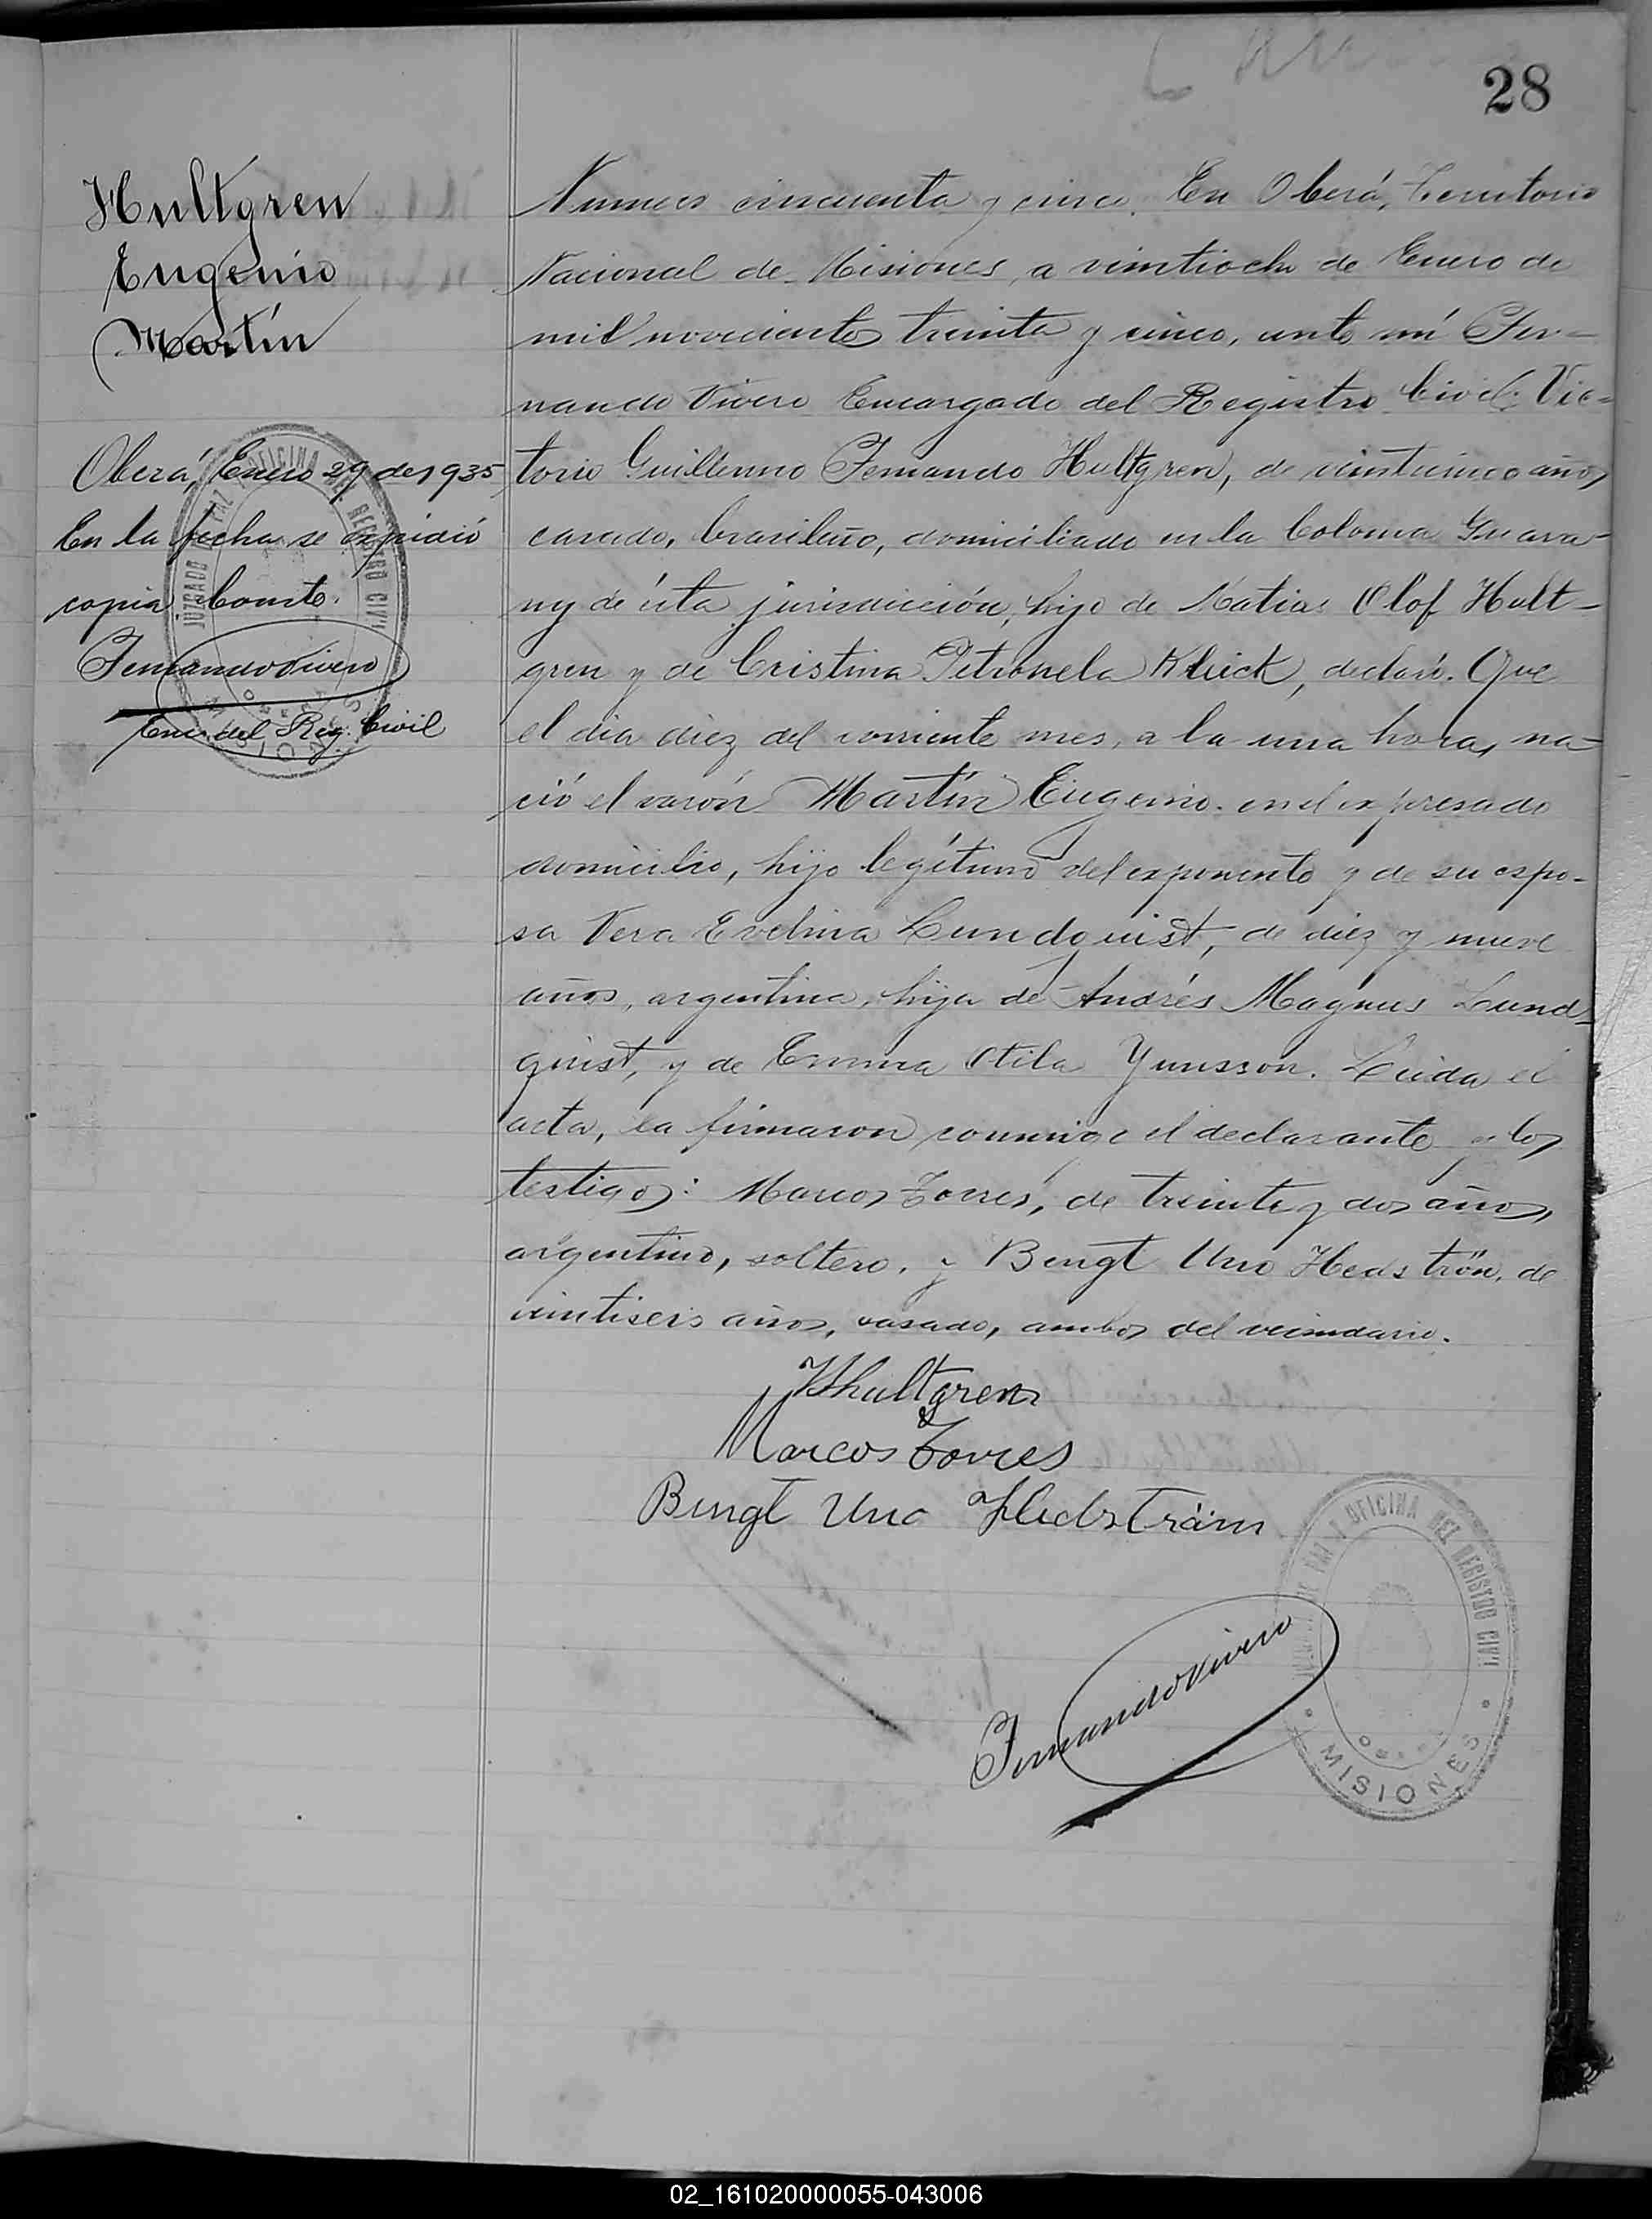 28
Hultgren
Eugenio
Martín
Oberá, Enero 29 de 1935
En la fecha se expidió
copia. Conste.
Fernando Vivero
Enc. del Reg. Civil
JUZGADO DE PAZ Y OFICINA DEL REGISTRO CIVIL
MISIONES
Numero cincuenta y cinco. En Oberá, Territorio
Nacional de Misiones, a veintiocho de Enero de
mil novecientos treinta y cinco, ante mí Fer-
nando Vivero Encargado del Registro Civil: Vic-
torio Guillermo Fernando Hultgren, de veinticinco años,
casado, brasileño, domiciliado en la Colonia Guara-
ny de ésta jurisdicción, hijo de Matias Olof Hult-
gren y de Cristina Petronela Kluck, declaró: Que
el día diez del corriente mes, a la una hora, na-
ció el varón Martín Eugenio. en el expresado
domicilio, hijo legítimo del exponente y de su espo-
sa Vera Evelina Lundquist, de diez y nueve
años, argentina, hija de Andrés Magnus Lund-
quist, y de Emma Otila Yunsson. Leída el
acta, la firmaron conmigo el declarante y los
testigos: Marcos Torres, de treinta y dos años,
argentino, soltero. y Bengt Uno Hedströn, de
veintiseis años, casado, ambos del vecindario.
Hultgren
Marcos Torres
Bengt Uno Hedström
Fernando Vivero
OFICINA DEL REGISTRO CIVIL
MISIONES
02_161020000055-043006